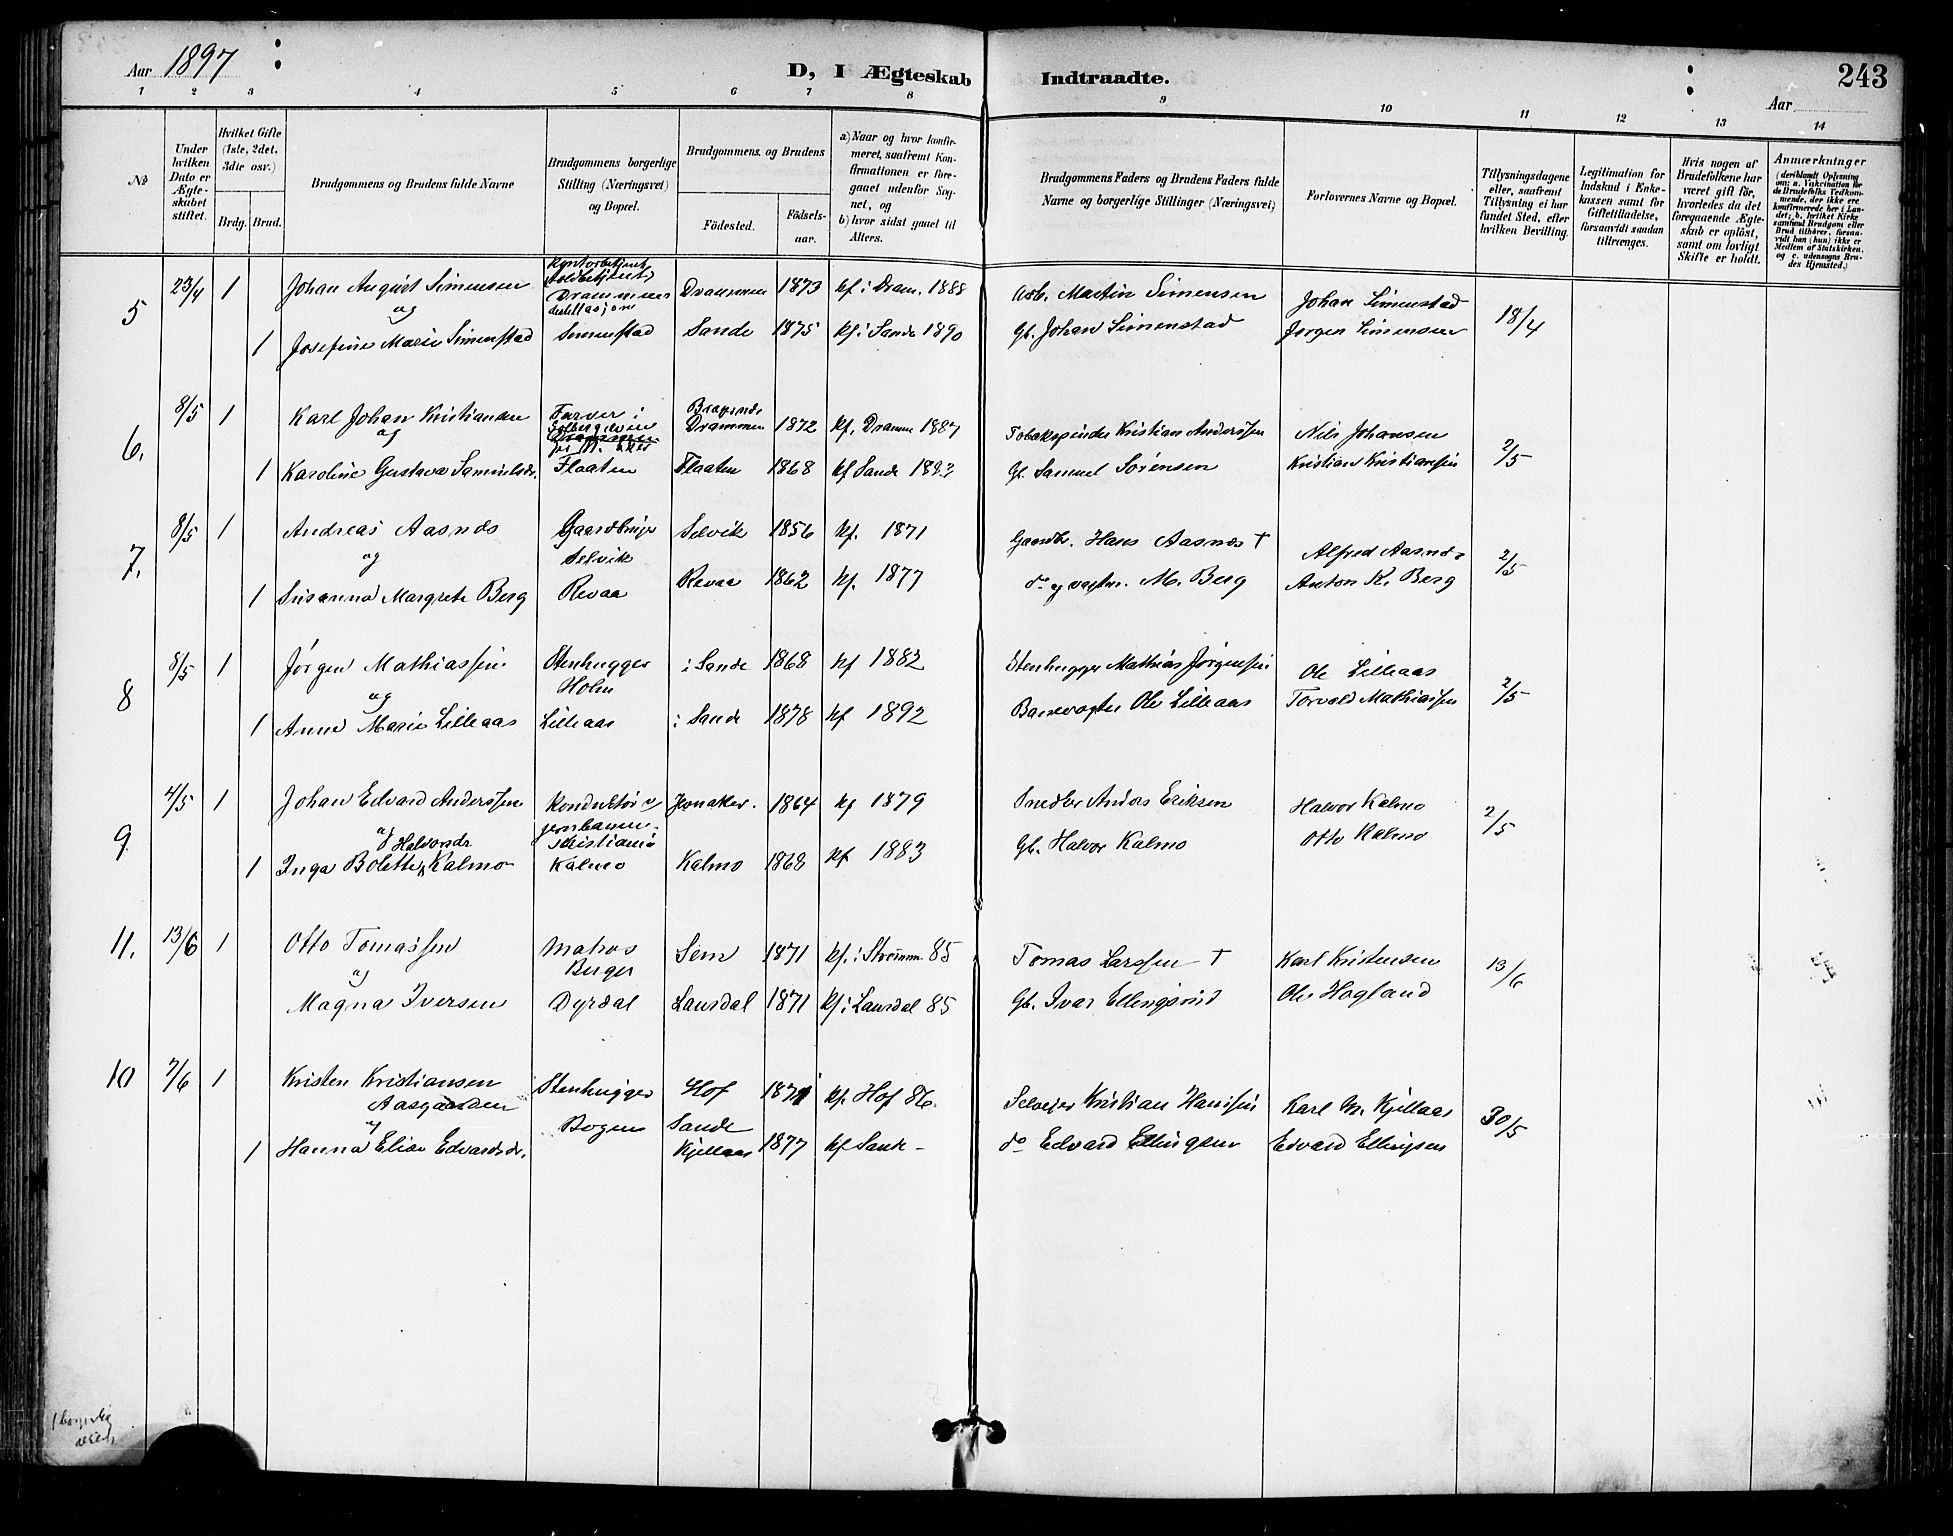 Aar 1897
D, I Ægteskab Indtraadte.
243
Aar
1 2 3 4 5 6 7 8 9 10 11 12 13 14
№
Under hvilken Dato er Ægteskabet stiftet.
Hvilket Gifte (1ste, 2det, 3die osv.)
Brdg. Brud.
Brudgommens og Brudens fulde Navne
Brudgommens borgerlige Stilling (Næringsvei) og Bopæl.
Brudgommens og Brudens
Födested.
Födselsaar.
a) Naar og hvor konfirmeret, saafremt Konfirmationen er foregaaet udenför Sognet, og
b) hvor sidst gaaet til Alters.
Brudgommens Faders og Brudens Faders fulde Navne og borgerlige Stillinger (Næringsvei)
Forlovernes Navne og Bopæl.
Tillysningsdagene eller, saafremt Tillysning ei har fundet Sted, efter hvilken Bevilling.
Legitimation for Indskud i Enkekassen samt for Giftetilladelse, forsaavidt saadan tiltrænges.
Hvis nogen af Brudefolkene har været gift för, hvorledes da det foregaaende Ægteskab er oplöst, samt om lovligt Skifte er holdt.
Anmærkninger (deriblandt Oplysning om: a. Vakcination for de Brudefolks Vedkommende, der ikke ere konfirmerede her i Landet; b. hvilket Kirkesamfund Brudgom eller Brud tilhörer, forsaavidt han (hun) ikke er Medlem af Statskirken, og c. udensogns Brudes Hjemsted.)
5 23/4 1 Johan August Simensen Drammens Drammen 1873 kf. i Dram. 1888 Arb. Martin Simensen Johan Simenstad 18/4
og
1 Josefine Marie Simenstad Simenstad Sande 1875 kf. i Sande 1890 Gb. Johan Simenstad Jørgen Simensen
6. 8/5 1 Karl Johan Kristiansen Farver i Drammen 1872 kf. Dramm 1887 Tobakspinder Kristian Anderssen Nils Johansen 2/5
og
1 Karoline Gustava Samuelsdr. Flaaten Flaaten 1868 kf Sande 1883 Gb. Samuel Sörensen Kristian Kristiansen
7. 8/5 1 Andreas Aasnæs Gaardbruger Selvik Selvik 1856 kf. 1871 Gaardbr. Hans Aasnæs † Alfred Aasnæs 2/5
og
1 Susanna Margrete Berg Revaa Revaa 1862 kf. 1877 do og M. Berg Anton K. Berg
8 8/5 1 Jørgen Mathiassen Stenhugger Holm i Sande 1868 kf 1882 Stenhugger Mathias Jørgensen Ole Lilleaas 2/5
og
1 Anne Marie Lilleaas Lilleaas i Sande 1878 kf 1892 Banevogter Ole Lilleaas Torvald Mathiassen
9 4/5 1 Johan Edvard Anderssen Konduktör v/ Jernbanen, Kristiania Jevnaker. 1864 kf 1879 Anders Eriksen Halvor Kalmo 2/5
og Halvorsdr.
1 Inga Bolette Kalmo Kalmo Kalmo 1868 kf 1883 Gb. Halvor Kalmo Otto Kalmo
11. 13/6 1 Otto Tomassen Matros Berger Sem 1871 kf. i Strömm 85 Tomas Larssen † Karl Kristensen 13/6
og
Magna Iversen Dyrdal Laurdal 1871 kf i Laurdal 85 Gb. Ivar Ellingsrud Ole Hogland
10 7/6 1 Kristen Kristiansen Aasgaarden Stenhugger Hof 1871 kf. Hof 86. Selveier Kristian Hansen Karl M. Kjellaas 30/5
og
1 Hanna Elise Edvardsdr. Bogen Sande Kjellaas 1877 kf Sande - do Edvard Ellingsen Edvard Ellingsen